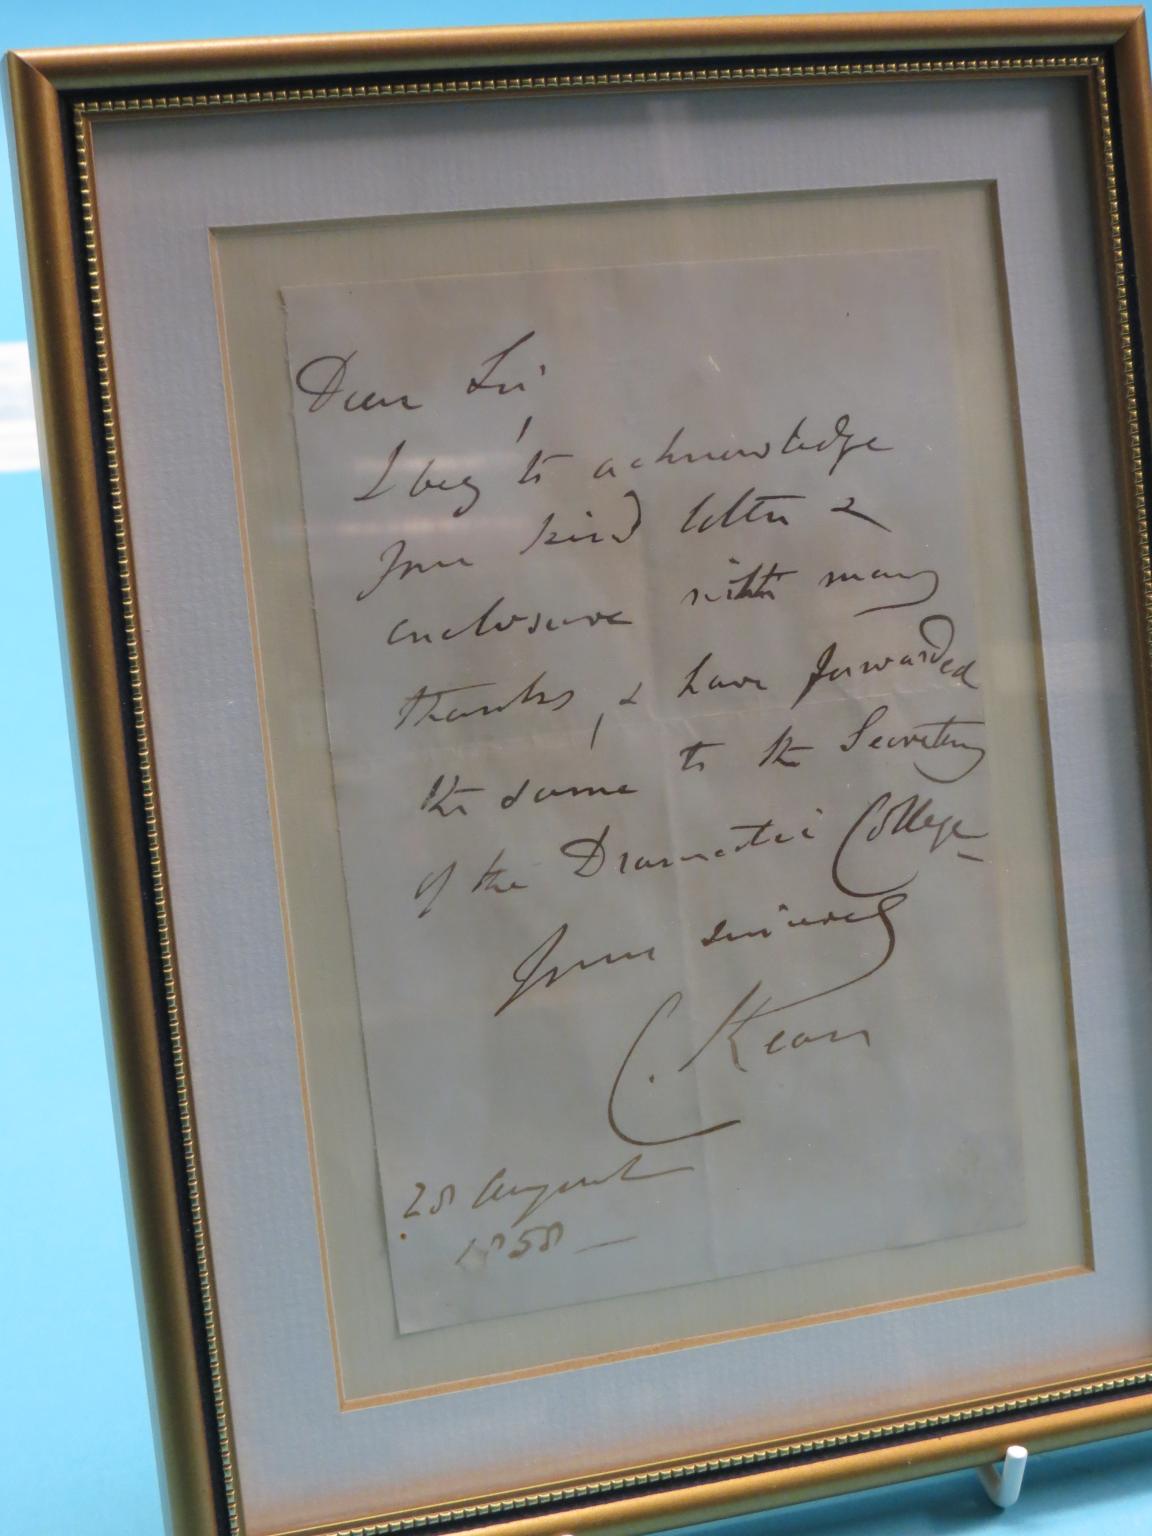 Dear Sir,
I beg to acknowledge
your kind letter &
enclosure with many
thanks, & have forwarded
the same to the Secretary
of the Dramatic College
Yours sincerely
C. Kean
28 August
1858 —